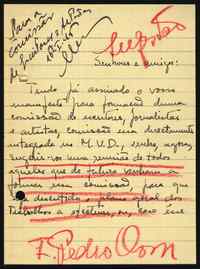 Para a
comissão
de escritores
Senhores e amigos:
Tendo já assinado o vosso
manifesto para formação duma
comissão de escritores, jornalistas
e artistas, comissão essa directamente
integrada no M.U.D., venho agora
sugerir-vos uma reunião de todos
aqueles que de futuro venham a
formar essa comissão, para que
o plano geral dos
trabalhos a efectivar, ou, caso esse
Pedro Oom